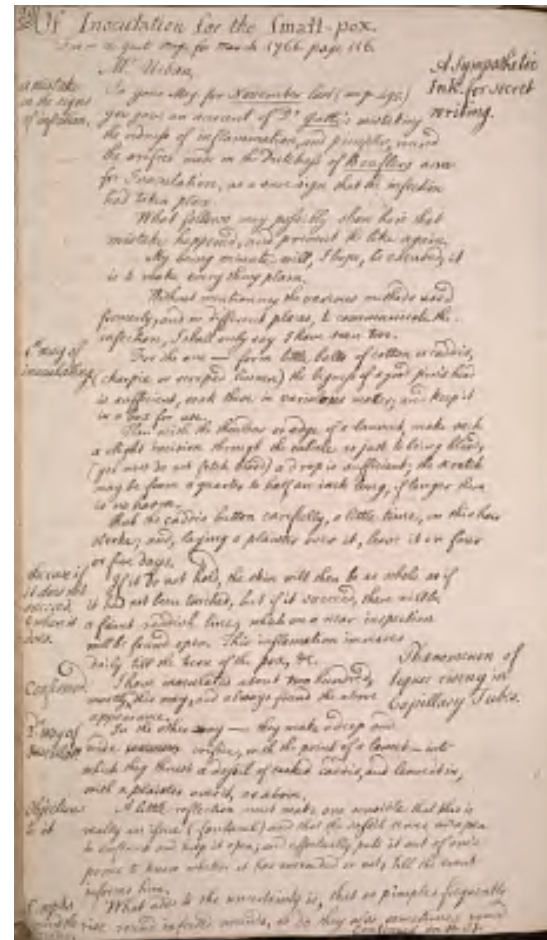 Of Inoculation for the Small-pox.
From the Gent. Mag. for March 1766. page 116.
Mr. Urban,
A Sympathetic
Ink, for secret
writing.
a mistake
in the signs
of infection.
In your Mag. for November last (
you gave an account of Dr. Gatti's mistaking
the redness of inflammation, and pimples, round
the orifice made in the Dutchess of Boufflers arm
for Inoculation, as a sure sign that the infection
had taken place.
What follows may possibly shew how that
mistake happened, and prevent the like again.
My being minute will, I hope, be excused, it
is to make every thing plain.
Without mentioning the various methods used
formerly, and in different places, to communicate the
infection, I shall only say I have seen two.
1st way of
inoculating
For the one — form little balls of cotton or caddis,
(charpie or scraped linnen) the bigness of a good pin's head
is sufficient, soak these in variolous matter, and keep it
in a box for use.
Then with the shoulder or edge of a lancet, make such
a slight incision through the cuticle as just to bring blood,
(yet must do not fetch blood) a drop is sufficient; the scratch
may be from a quarter to half an inch long, if longer there
is no harm.
the caddis button carefully, a little time, on this
and, laying a plaister over it, leave it on four
or five days.
the case if
it does not
succeed,
& when it
does.
If it do not hold, the skin will then be as whole as if
it had not been touched, but if it succeed, there will be
a faint reddish line, which on a near inspection
will be found open. This inflamation increases
daily till the turn of the pox, &c.
Phenomenon of
liquor rising in
Capillary Tubes.
Confirmed.
I have inoculated about two hundred,
mostly this way, and always found the above
appearance.
2d way of
inoculating
In the other way — they make a deep and
wide orifice, with the point of a lancet — into
which they thrust a dossil of soaked caddis, and leave it in,
with a plaister over it, as above.
Objections
to it
A little reflection must make one sensible that this is
really an issue (fontanel) and that the dossil serves as a pea
to inflame and keep it open; and effectually puts it out of one's
power to know whether it has succeeded or not, till the event
informs him.
What adds to the uncertainty is, that as pimples frequently
rise round infected wounds, so do they also sometimes round
Continued on